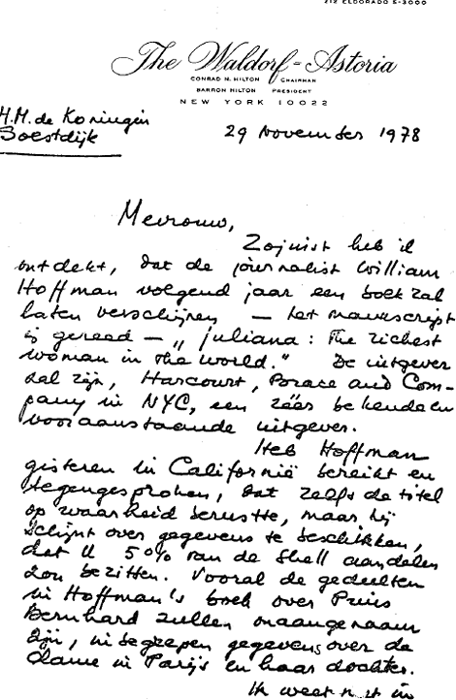 212 ELDORADO 5-3000
The Waldorf-Astoria
CONRAD N. HILTON CHAIRMAN
BARRON HILTON PRESIDENT
NEW YORK 10022
H.M. de Koningin
Soestdijk
29 November 1978
Mevrouw,
Zojuist heb ik
ontdekt, dat de journalist William
Hoffman volgend jaar een boek zal
laten verschijnen — het manuscript
is gereed — „Juliana: The richest
woman in the world." De uitgever
zal zijn, Harcourt, Brace and Com-
pany in NYC, een zéér bekende en
vooraanstaande uitgever.
Heb Hoffman
gisteren in Californië bereikt en
tegengesproken, dat zelfs de titel
op waarheid berustte, maar hij
schijnt over gegevens te beschikken,
dat U 5% van de Shell aandelen
zou bezitten. Vooral de gedeelten
in Hoffman's boek over Prins
Bernhard zullen onaangenaam
zijn, inbegrepen gegevens over de
dame in Parijs en haar dochter.
Ik weet